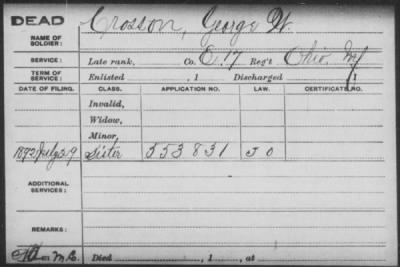 DEAD
NAME OF SOLDIER: Crosson, George W.
SERVICE: Late rank, Co. E. 17 Reg't Ohio Inf
TERM OF SERVICE: Enlisted , 1 Discharged , 1
DATE OF FILING. CLASS. APPLICATION NO. LAW. CERTIFICATE NO.
Invalid,
Widow,
Minor,
1892 July 29 Sister 553831 J O
ADDITIONAL SERVICES:
REMARKS:
M.C. Died , 1 , at